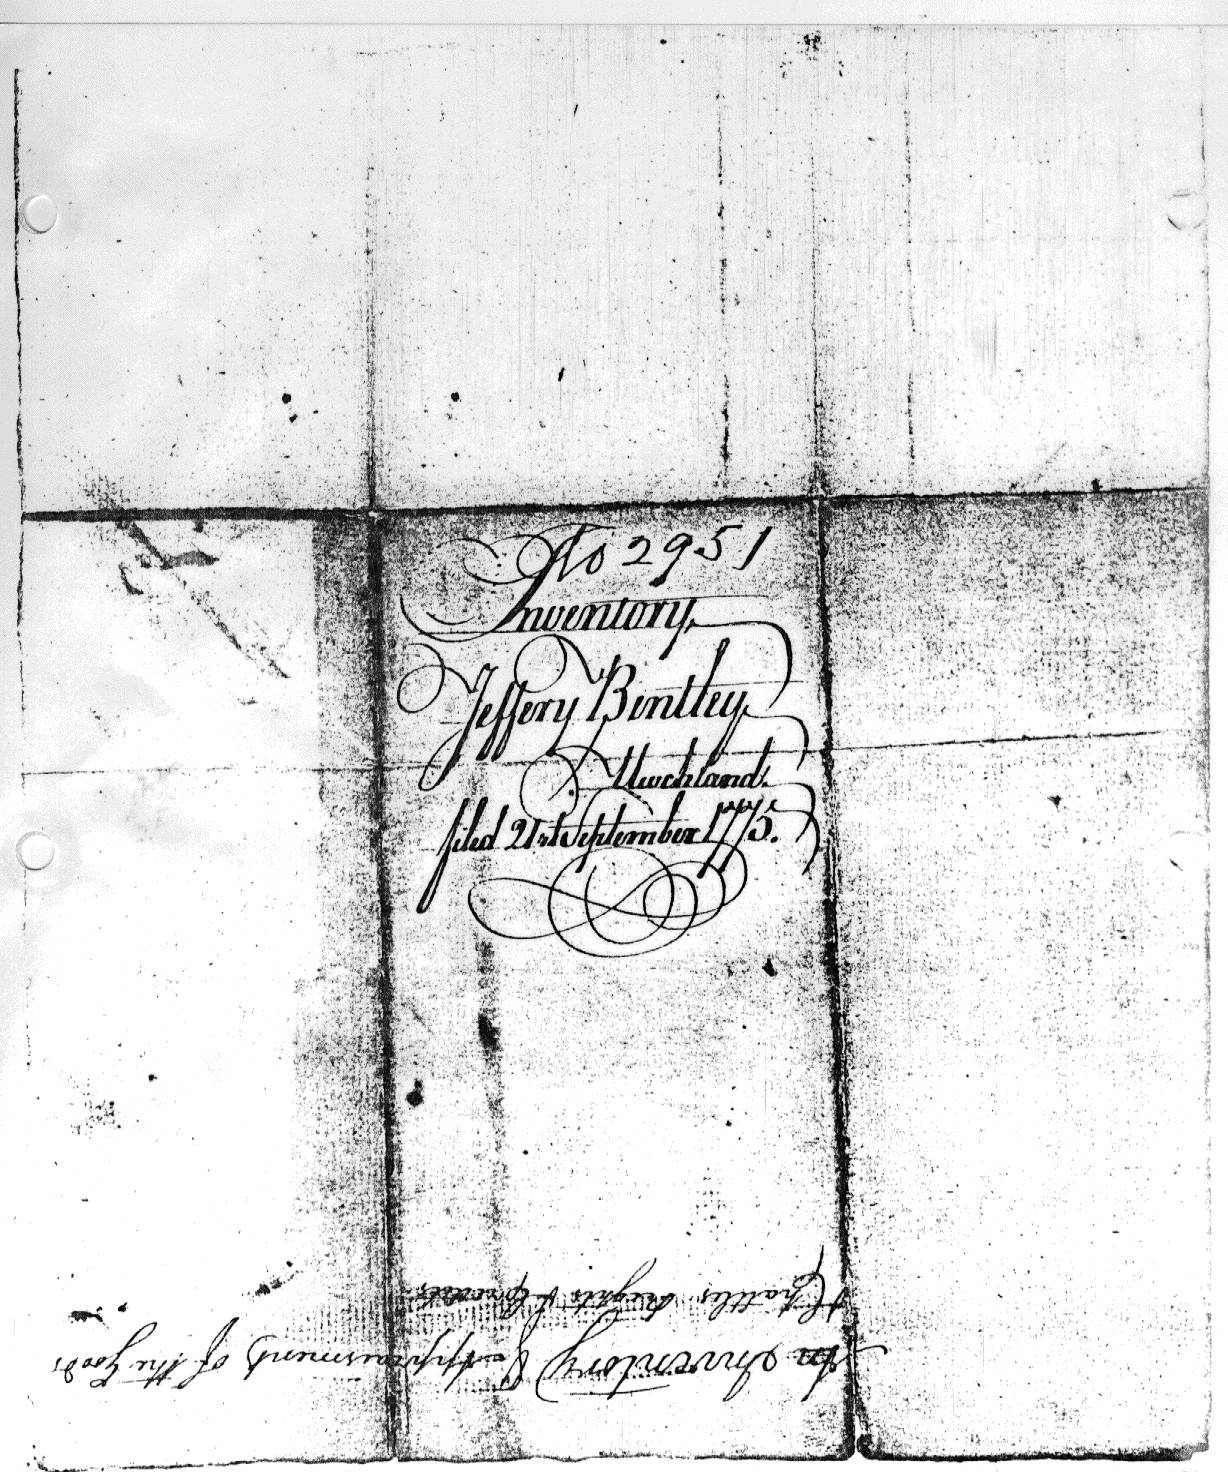 No 2951
Inventory
Jeffery Bentley
Uwchland.
filed 21st September 1775.
An Inventory & Appraisment of the Goods
& Chattles Reights & Credits